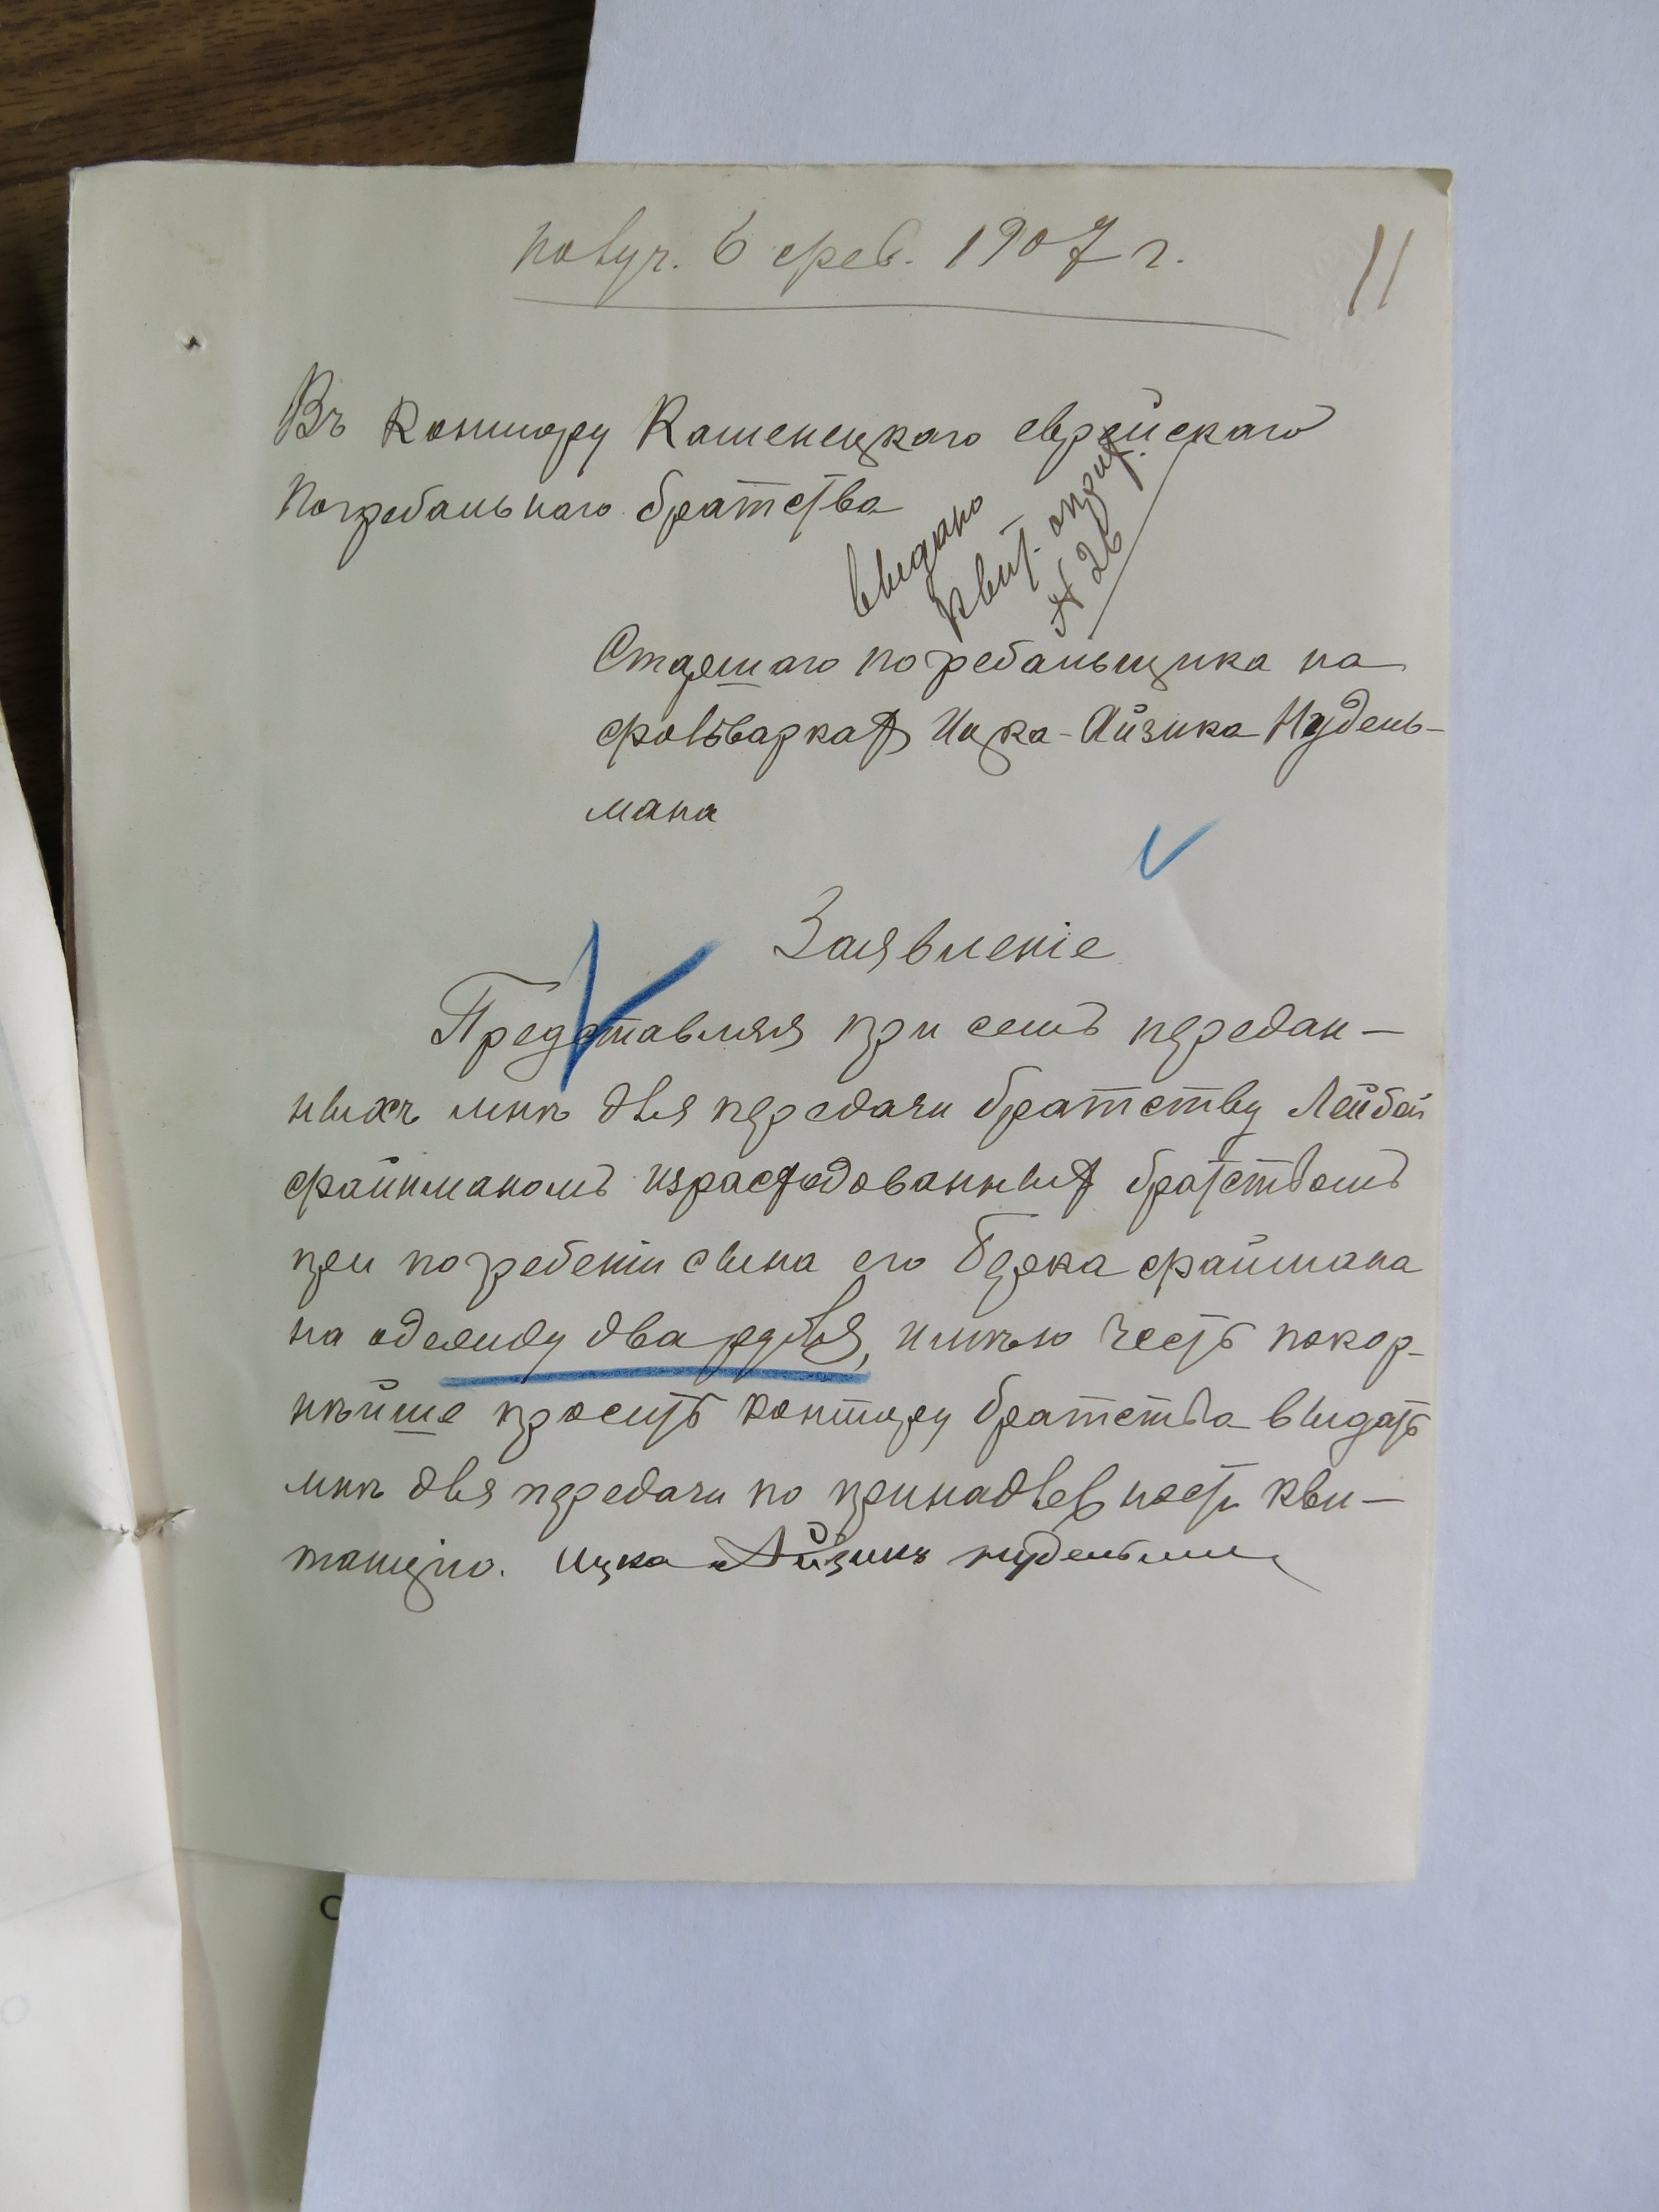 получ. 6 фев. 1907 г.
11
Въ Контору Каменецкаго еврейскаго
Погребальнаго братства
выдано
квит.
№ 26
Старшаго погребальщика на
фольваркахъ Ицка-Айзика Нудель-
мана
Заявленіе
Представляя при семъ передан-
ныхъ мнѣ для передачи братству Лейбой
Файнманомъ израсходованныхъ братствомъ
при погребеніи сына его Берка Файнмана
на одежду два рубля, имѣю честь покор-
нѣйше просить контору братства выдать
мнѣ для передачи по принадлежности кви-
танцію. Ицка Айзикъ Нудельман